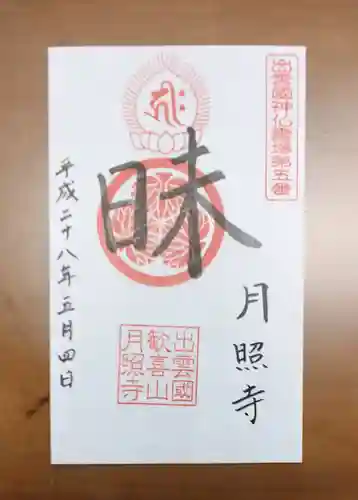 出雲國神仏霊場第五番
昧
月照寺
平成二十八年五月四日
出雲國
歓喜山
月照寺